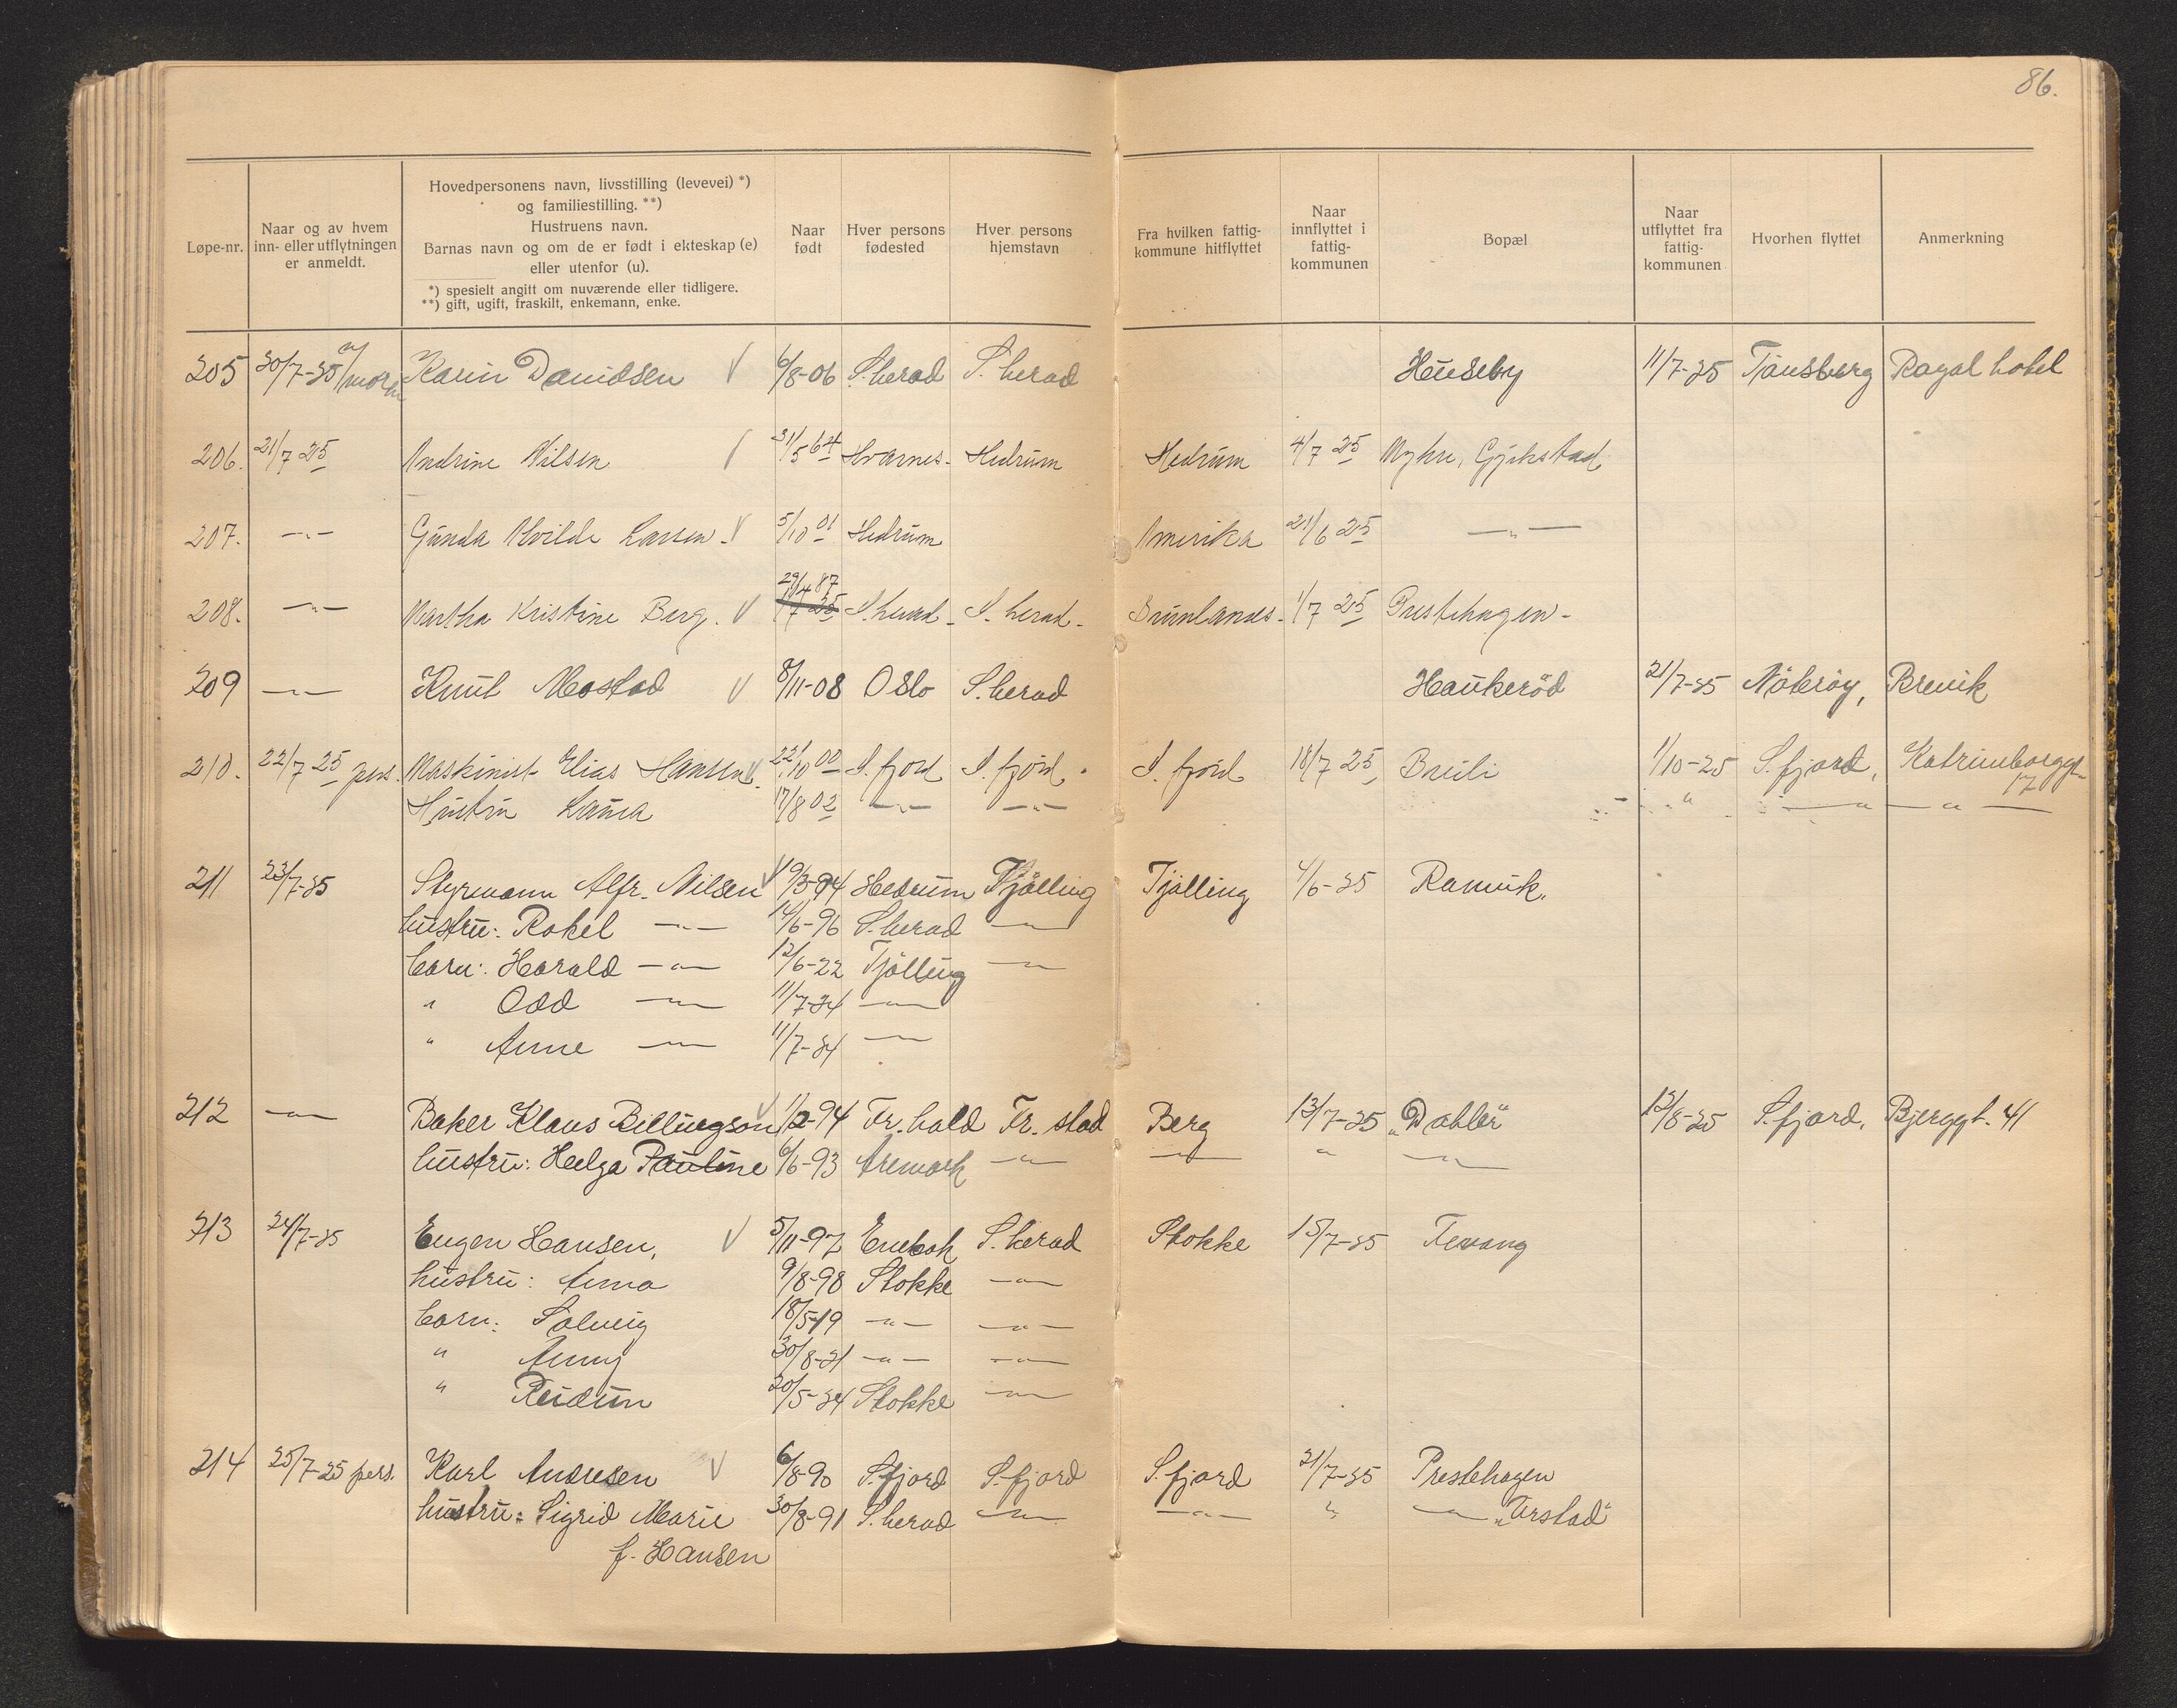 86.
Løpe-nr. Naar og av hvem inn- eller utflytningen er anmeldt. Hovedpersonens navn, livsstilling (levevei) *) og familiestilling. **) Hustruens navn. Barnas navn og om de er født i ekteskap (e) eller utenfor (u). *) spesielt angitt om nuværende eller tidligere. **) gift, ugift, fraskilt, enkemann, enke. Naar født Hver persons fødested Hver persons hjemstavn Fra hvilken fattigkommune hitflyttet Naar innflyttet i fattigkommunen Bopæl Naar utflyttet fra fattigkommunen Hvorhen flyttet Anmerkning
205 20/7-25 Karin Davidsen 6/8-06 S.herad S.herad Huseby 11/7-25 Tønsberg Royal hotel
206. 21/7 25 Andrine Nilsen 31/5 64 Hvarnes- Hedrum Hedrum 4/7 25 Myhre, Gjekstad
207. -"- Gunda Alvilde Larsen. 5/10 01 Hedrum Amerika 21/6 25 -"-
29/4 87
208. -"- Martha Kristine Berg. 1/7 25 S.herad- S.herad- Brunlanes- 1/7 25 Prestehagen-
209 -"- Knut Mostad 8/11-08 Oslo S.herad Haukerød 21/7-25 Nøterøy, Brevik
210. 22/7 25 pers. Maskinist Elias Hansen. 22/10 00 S.fjord S.fjord S.fjord 18/7 25 Brüli 1/10-25 S.fjord, Katrineborggt. 17
Hustru Laura 17/8 02 -"- -"- " -"- -"-
211 23/7-25 Styrmann Alfr. Nilsen 9/3-94 Hedrum Tjølling Tjølling 4/6-25 Ramvik.
hustru: Rakel -"- 14/6-96 S.herad -"-
barn: Harald -"- 12/6-22 Tjølling -"-
" Odd -"- 11/7-24 -"-
" Anne -"- 11/7-24 -"-
212 -"- Baker Klaus Billingson 1/2-94 Fr.hald Fr.stad Berg 13/7-25 "Dahler" 12/8-25 S.fjord, Bjerggt. 41
hustru: Helga Pauline 6/6-93 Aremark -"- -"- " -"-
213 24/7-25 Eugen Hansen, 5/11-97 Enebak S.herad Stokke 15/7-25 Tevang
hustru: Anna 9/8-98 Stokke -"-
barn: Solveig 18/5-19 -"- -"-
" Anny 30/8-21 -"- -"-
" Reidun 20/5-24 Stokke -"-
214 25/7-25 pers. Karl Andresen 6/8-90 S.fjord S.fjord S.fjord 21/7-25 Prestehagen
hustru: Sigrid Marie 30/8-91 S.herad -"- -"- " -"- "Ørstad"
f. Hansen